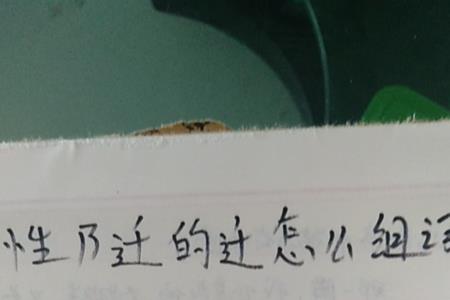 性乃迁的迁怎么组词